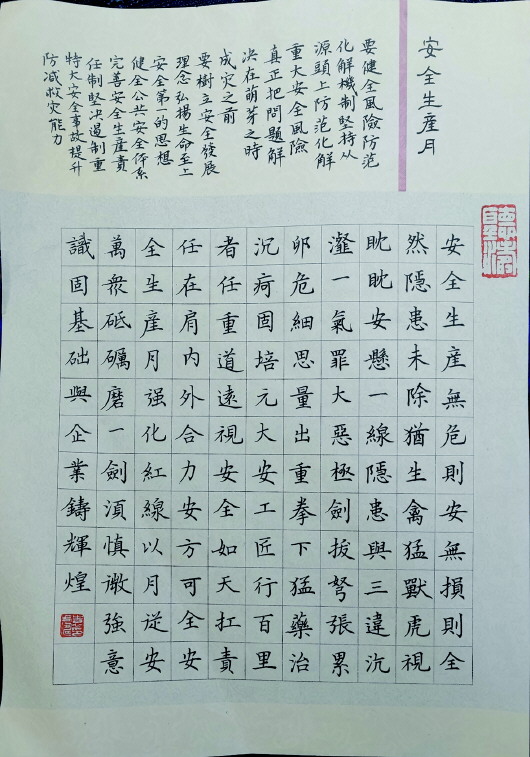 安全生産月
要健全風險防范
化解機制堅持从
源頭上防范化解
重大安全風險
真正把問題解
决在萌芽之時
成灾之前
要樹立安全發展
理念弘揚生命至上
安全第一的思想
健全公共安全体系
完善安全生産責
任制堅决遏制重
特大安全事故提升
防减救灾能力
聽濤
安全生産無危則安無損則全
然隱患未除猶生禽猛獸虎視
眈眈安懸一線隱患與三違沉
瀣一氣罪大惡極劍拔弩張累
卵危細思量出重拳下猛藥治
沉疴固培元大安工匠行百里
者任重道遠視安全如天扛責
任在肩内外合力安方可全安
全生産月强化紅線以月従安
萬衆砥礪磨一劍須慎微強意
識固基础與企業鑄輝煌